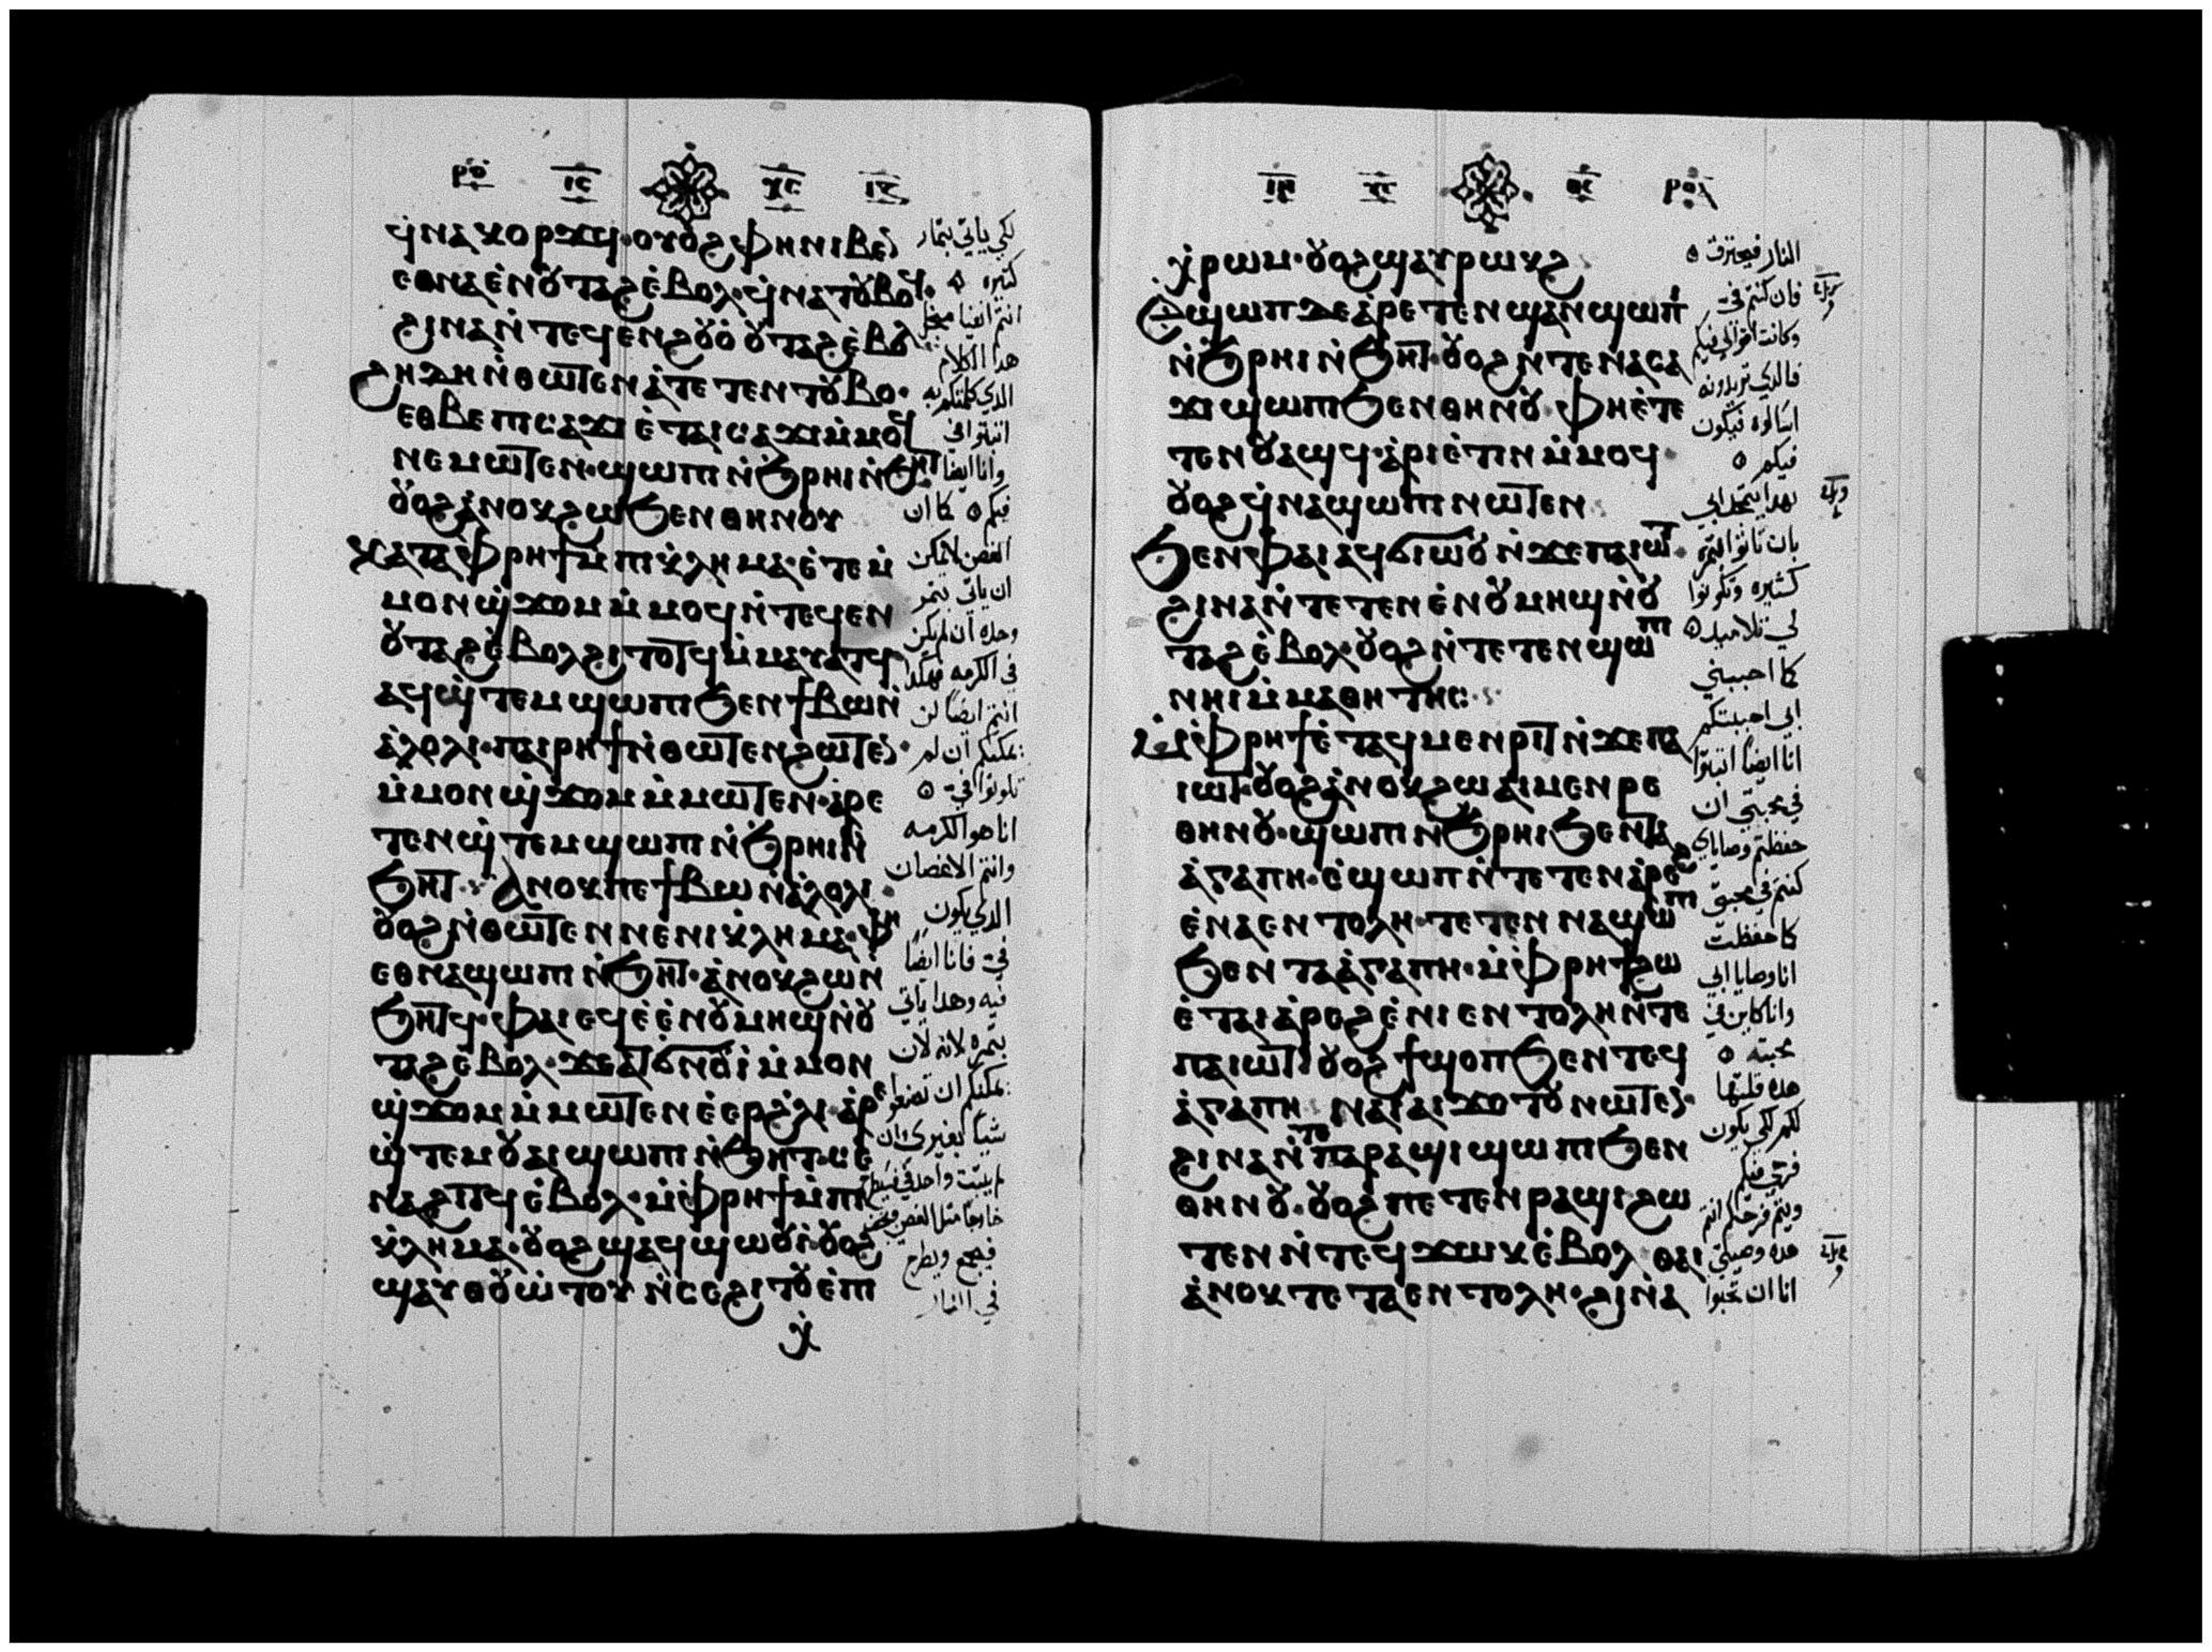 ⲣⲟ ⲓⲥ ⲭⲥ
ϥⲛⲁⲕⲟⲣϫϥ· ⲟⲩⲟϩ ⲫⲏ ⲛⲓⲃⲉⲛ
ⲉⲑⲛⲁⲉⲛⲟⲩⲧⲁϩ ⲉⲃⲟⲗ· ϥⲛⲁⲧⲟⲩⲃⲟϥ·
ϩⲓⲛⲁ ⲛⲧⲉϥⲉⲛ ϩⲟⲩⲟ ⲟⲩⲧⲁϩ ⲉⲃⲟⲗ
ϩⲏⲇⲏ ⲛⲑⲱⲧⲉⲛ ⲁⲧⲉⲧⲉⲛⲧⲟⲩⲃⲟ·
ⲉⲑⲃⲉ ⲡⲓⲥⲁϫⲓ ⲉⲧⲁⲓⲥⲁϫⲓ ⲙⲙⲟϥ
ⲛⲉⲙⲱⲧⲉⲛ· ϣⲱⲡⲓ ⲛϧⲣⲏⲓ ⲛϧⲏⲧ
ⲟⲩⲟϩ ⲁⲛⲟⲕ ϩⲱ ϧⲉⲛ ⲑⲏⲛⲟⲩ
ⲕⲁⲧⲁ ⲫⲣⲏϯ ⲙⲡⲓⲕⲗⲏⲙⲁ· ⲉⲧⲉ ⲙ
ⲙⲟⲛ ϣϫⲟⲙ ⲙⲙⲟϥ ⲛⲧⲉϥⲉⲛ
ⲟⲩⲧⲁϩ ⲉⲃⲟⲗ ϩⲓⲧⲟⲧϥ ⲙⲙⲁⲩⲁⲧϥ
ⲁϥϣⲧⲉⲙϣⲱⲡⲓ ϧⲉⲛ ϯⲃⲱ ⲛ
ⲁⲗⲟⲗⲓ· ⲡⲁⲓⲣⲏϯ ⲛⲑⲱⲧⲉⲛ ϩⲱⲧⲉⲛ·
ⲙⲙⲟⲛ ϣϫⲟⲙ ⲙⲙⲱⲧⲉⲛ· ⲁⲣⲉ
ⲧⲉⲛϣⲧⲉⲙϣⲱⲡⲓ ⲛϧⲣⲏⲓ ⲛ
ϧⲏⲧ· ⲁⲛⲟⲕ ⲡⲉ ϯⲃⲱ ⲛⲁⲗⲟⲗⲓ·
ⲟⲩⲟϩ ⲛⲑⲱⲧⲉⲛ ⲛⲉ ⲛⲓⲕⲗⲏⲙⲁ· ⲫⲏ
ⲉⲑⲛⲁϣⲱⲡⲓ ⲛϧⲏⲧ· ⲁⲛⲟⲕ ϩⲱ ⲛ
ϧⲏⲧϥ· ⲫⲁⲓ ⲉϥⲉⲉⲛ ⲟⲩⲙⲏϣ ⲛⲟⲩ
ⲧⲁϩ ⲉⲃⲟⲗ· ϫⲉ ⲁⲧϭⲛⲟⲩⲓ ⲙⲙⲟⲛ
ϣϫⲟⲙ ⲙⲙⲱⲧⲉⲛ ⲉⲉⲣ ϩⲗⲓ· ⲁⲣⲉ
ϣⲧⲉⲙ ⲟⲩⲁⲓ ϣⲱⲡⲓ ⲛϧⲏⲧ· ⲥⲉ
ⲛⲁϩⲓⲧϥ ⲉⲃⲟⲗ· ⲙⲫⲣⲏϯ ⲙⲡⲓ
ⲕⲗⲏⲙⲁ· ⲟⲩⲟϩ ϣⲁϥϣⲱⲟⲩⲓ· ⲟⲩⲟϩ
ϣⲁⲩⲑⲟⲩⲱⲧⲟⲩ ⲛⲥⲉϩⲓⲧⲟⲩ ⲉⲡⲓ
ⲭ
لكي ياتي بثمار
كثيره ه
هدا الكلام
الدي كلمتكم به
اثبتوا في
وانا ايضا
فيكم ه كما ان
الغصن لا يمكن
ان ياتي بثمر
وحده ان لم يكن
في الكرمه
انتم ايضا لن
يمكنكم ان لم
تكونوا في ه
انا هو الكرمه
وانتم الاغصان
الدي يكون
في فانا ايضا
فيه وهدا ياتي
يمكنكم ان تصنعوا
شيا بغيري
فيجمع ويطرح
في النار
ⲓⲏ ⲭⲥ ⲑⲥ ⲣⲟⲁ
ⲭⲣⲱⲙ· ⲟⲩⲟϩ ϣⲁⲩⲣⲱⲕϩ
ⲉϣⲱⲡ ⲇⲉ ⲁⲣⲉⲧⲉⲛϣⲁⲛϣⲱⲡⲓ
ⲛϧⲣⲏⲓ ⲛϧⲏⲧ· ⲟⲩⲟϩ ⲛⲧⲉ ⲛⲁⲥⲁ
ϫⲓ ϣⲱⲡⲓ ϧⲉⲛ ⲑⲏⲛⲟⲩ· ⲫⲏ ⲉⲧⲉ
ⲧⲉⲛⲟⲩⲁϣϥ· ⲁⲣⲓⲉⲧⲓⲛ ⲙⲙⲟϥ·
ⲟⲩⲟϩ ϥⲛⲁϣⲱⲡⲓ ⲛⲱⲧⲉⲛ
ϧⲉⲛ ⲫⲁⲓ ⲁϥϭⲓⲱⲟⲩ ⲛϫⲉ ⲡⲁⲓⲱⲧ·
ϩⲓⲛⲁ ⲛⲧⲉⲧⲉⲛⲉⲛ ⲟⲩⲙⲏϣ ⲛⲟⲩ
ⲧⲁϩ ⲉⲃⲟⲗ· ⲟⲩⲟϩ ⲛⲧⲉⲧⲉⲛϣⲱⲡⲓ
ⲛⲏⲓ ⲙⲙⲁⲑⲏⲧⲏⲥ·
ⲙⲫⲣⲏϯ ⲉⲧⲁϥⲙⲉⲛⲣⲓⲧ ⲛϫⲉ ⲡⲁ
ⲓⲱⲧ· ⲟⲩⲟϩ ⲁⲛⲟⲕ ϩⲱ ⲁⲓⲙⲉⲛⲣⲉ
ⲑⲏⲛⲟⲩ· ϣⲱⲡⲓ ⲛϧⲣⲏⲓ ϧⲉⲛ ⲧⲁ
ⲁⲅⲁⲡⲏ· ⲉϣⲱⲡ ⲛⲧⲉⲧⲉⲛⲁⲣⲉϩ
ⲉⲛⲁⲉⲛⲧⲟⲗⲏ· ⲧⲉⲧⲉⲛⲛⲁϣⲱⲡⲓ
ϧⲉⲛ ⲧⲁⲁⲅⲁⲡⲏ· ⲙⲫⲣⲏϯ ϩⲱ
ⲉⲧⲁⲓⲁⲣⲉϩ ⲉⲛⲓⲉⲛⲧⲟⲗⲏ ⲛⲧⲉ
ⲡⲁⲓⲱⲧ· ⲟⲩⲟϩ ϯϣⲟⲡ ϧⲉⲛ ⲧⲉϥ
ⲁⲅⲁⲡⲏ ⲛⲁⲓ ⲁⲓϫⲟⲧⲟⲩ ⲛⲱⲧⲉⲛ·
ϩⲓⲛⲁ ⲛⲧⲉ ⲡⲁⲣⲁϣⲓ ϣⲱⲡⲓ ϧⲉⲛ
ⲑⲏⲛⲟⲩ· ⲟⲩⲟϩ ⲡⲉⲧⲉⲛⲣⲁϣⲓ ϩⲱ
ⲧⲉⲛ ⲛⲧⲉϥϫⲱⲕ ⲉⲃⲟⲗ ⲑⲁⲓ
ⲁⲛⲟⲕ ⲧⲉ ⲧⲁⲉⲛⲧⲟⲗⲏ· ϩⲓⲛⲁ
النار فيحترق ه
فان كنتم في
وكانت اقوالي فيكم
فالدي تريدونه
اسالوه فيكون
فيكم ه
بهدا يتمجد ابي
بان تاتوا بثمره
كثيره وتكونوا
لي تلاميد ه
كما احببني
ابي احببتكم
انا ايضا اثبتوا
في محبتي ان
حفظتم وصاياي
كنتم في محبتي
كما حفظت
انا وصايا ابي
وانا كاين في
محبته ه
هده قلتها
لكم لكي يكون
فرحي فيكم
ويتم فرحكم انتم
هده وصيتي
انا ان تحبوا